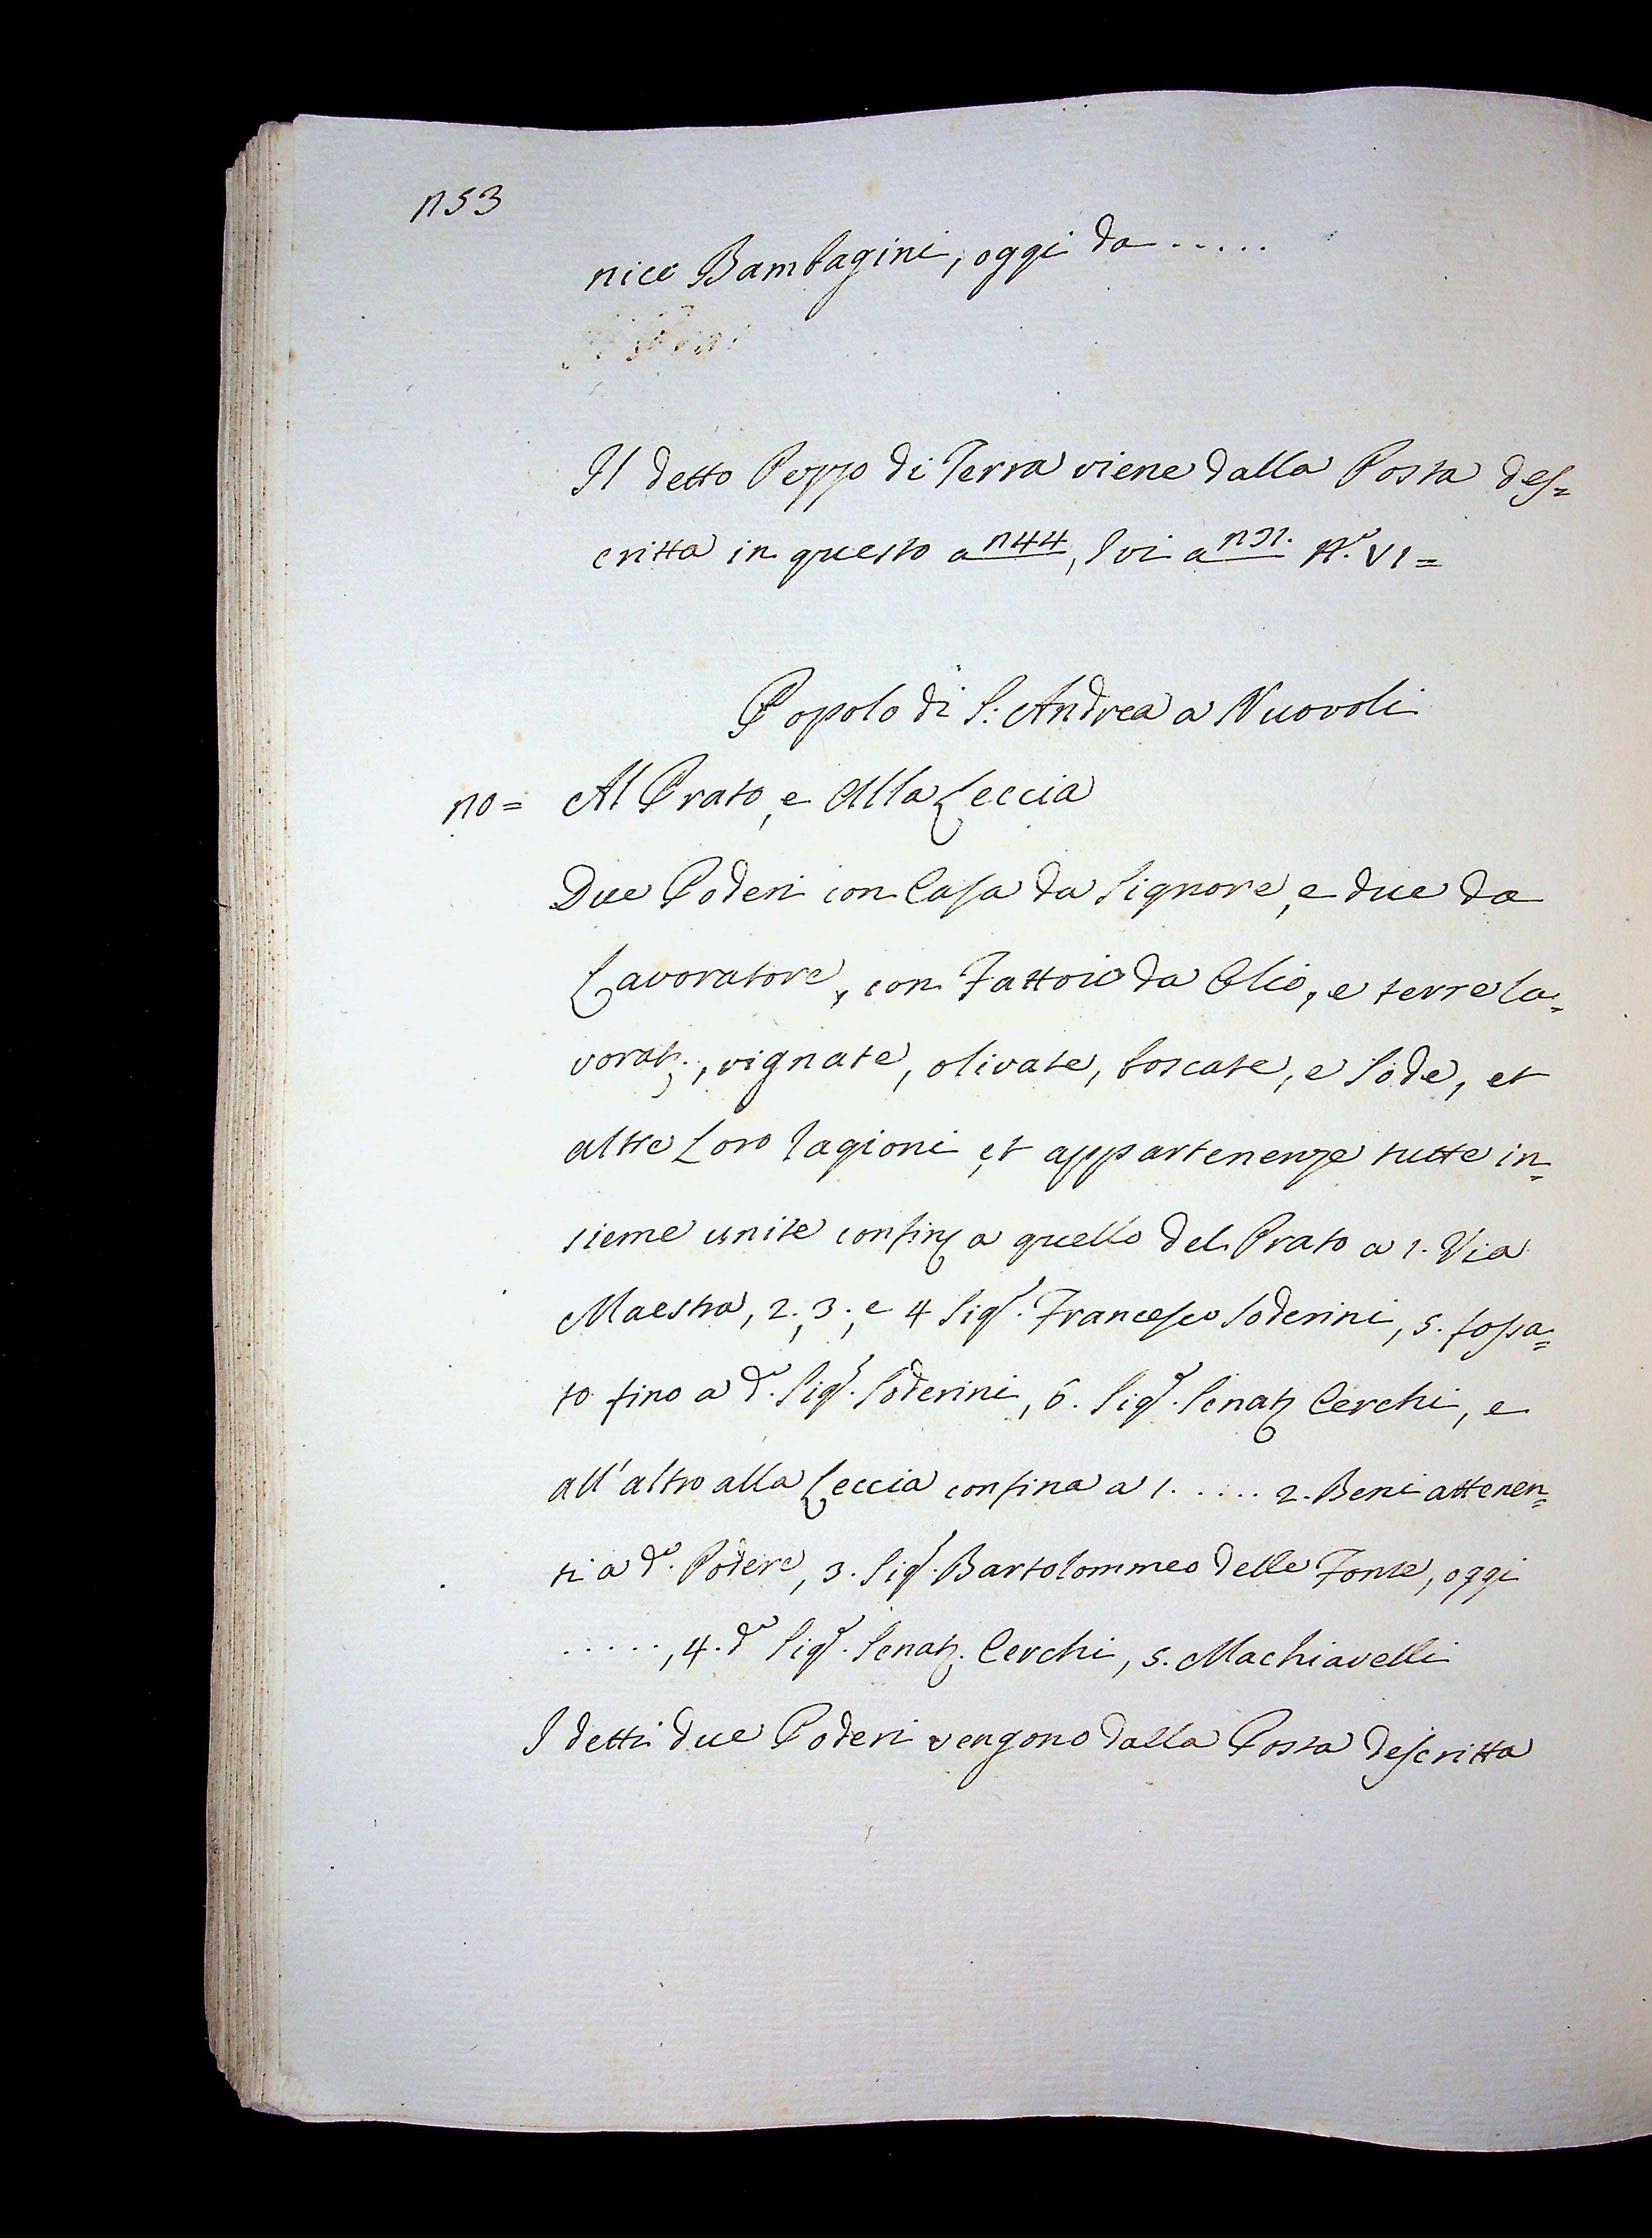 153
nico Bambagini, oggi da .....
Il detto Pezzo di Terra viene dalla Posta des=
critta in questo a 144, Ivi a 191. N.º VI=
Popolo di S: Andrea a Nuovoli
10= Al Prato, e Alla Leccia
Due Poderi con Casa da Signore, e due da
Lavoratore, con Fattoio da Olio, e terre la=
vorat., vignate, olivate, boscate, e Sode, et
altre Loro ragioni, et appartenenze tutte in=
sieme unite confina quello del Prato a 1. Via
Maestra, 2., 3., e 4 Sig.r Francesco Soderini, 5. fossa=
to fino a d.º Sig.r Soderini, 6. Sig.r Senat. Cerchi, e
all'altro alla Leccia confina a 1. .... 2. Beni attenen=
ti a d.º Podere, 3. Sig.r Bartolommeo delle Fonte, oggi
....., 4. d.º Sig.r Senat. Cerchi, 5. Machiavelli
I detti due Poderi vengono dalla Posta descritta